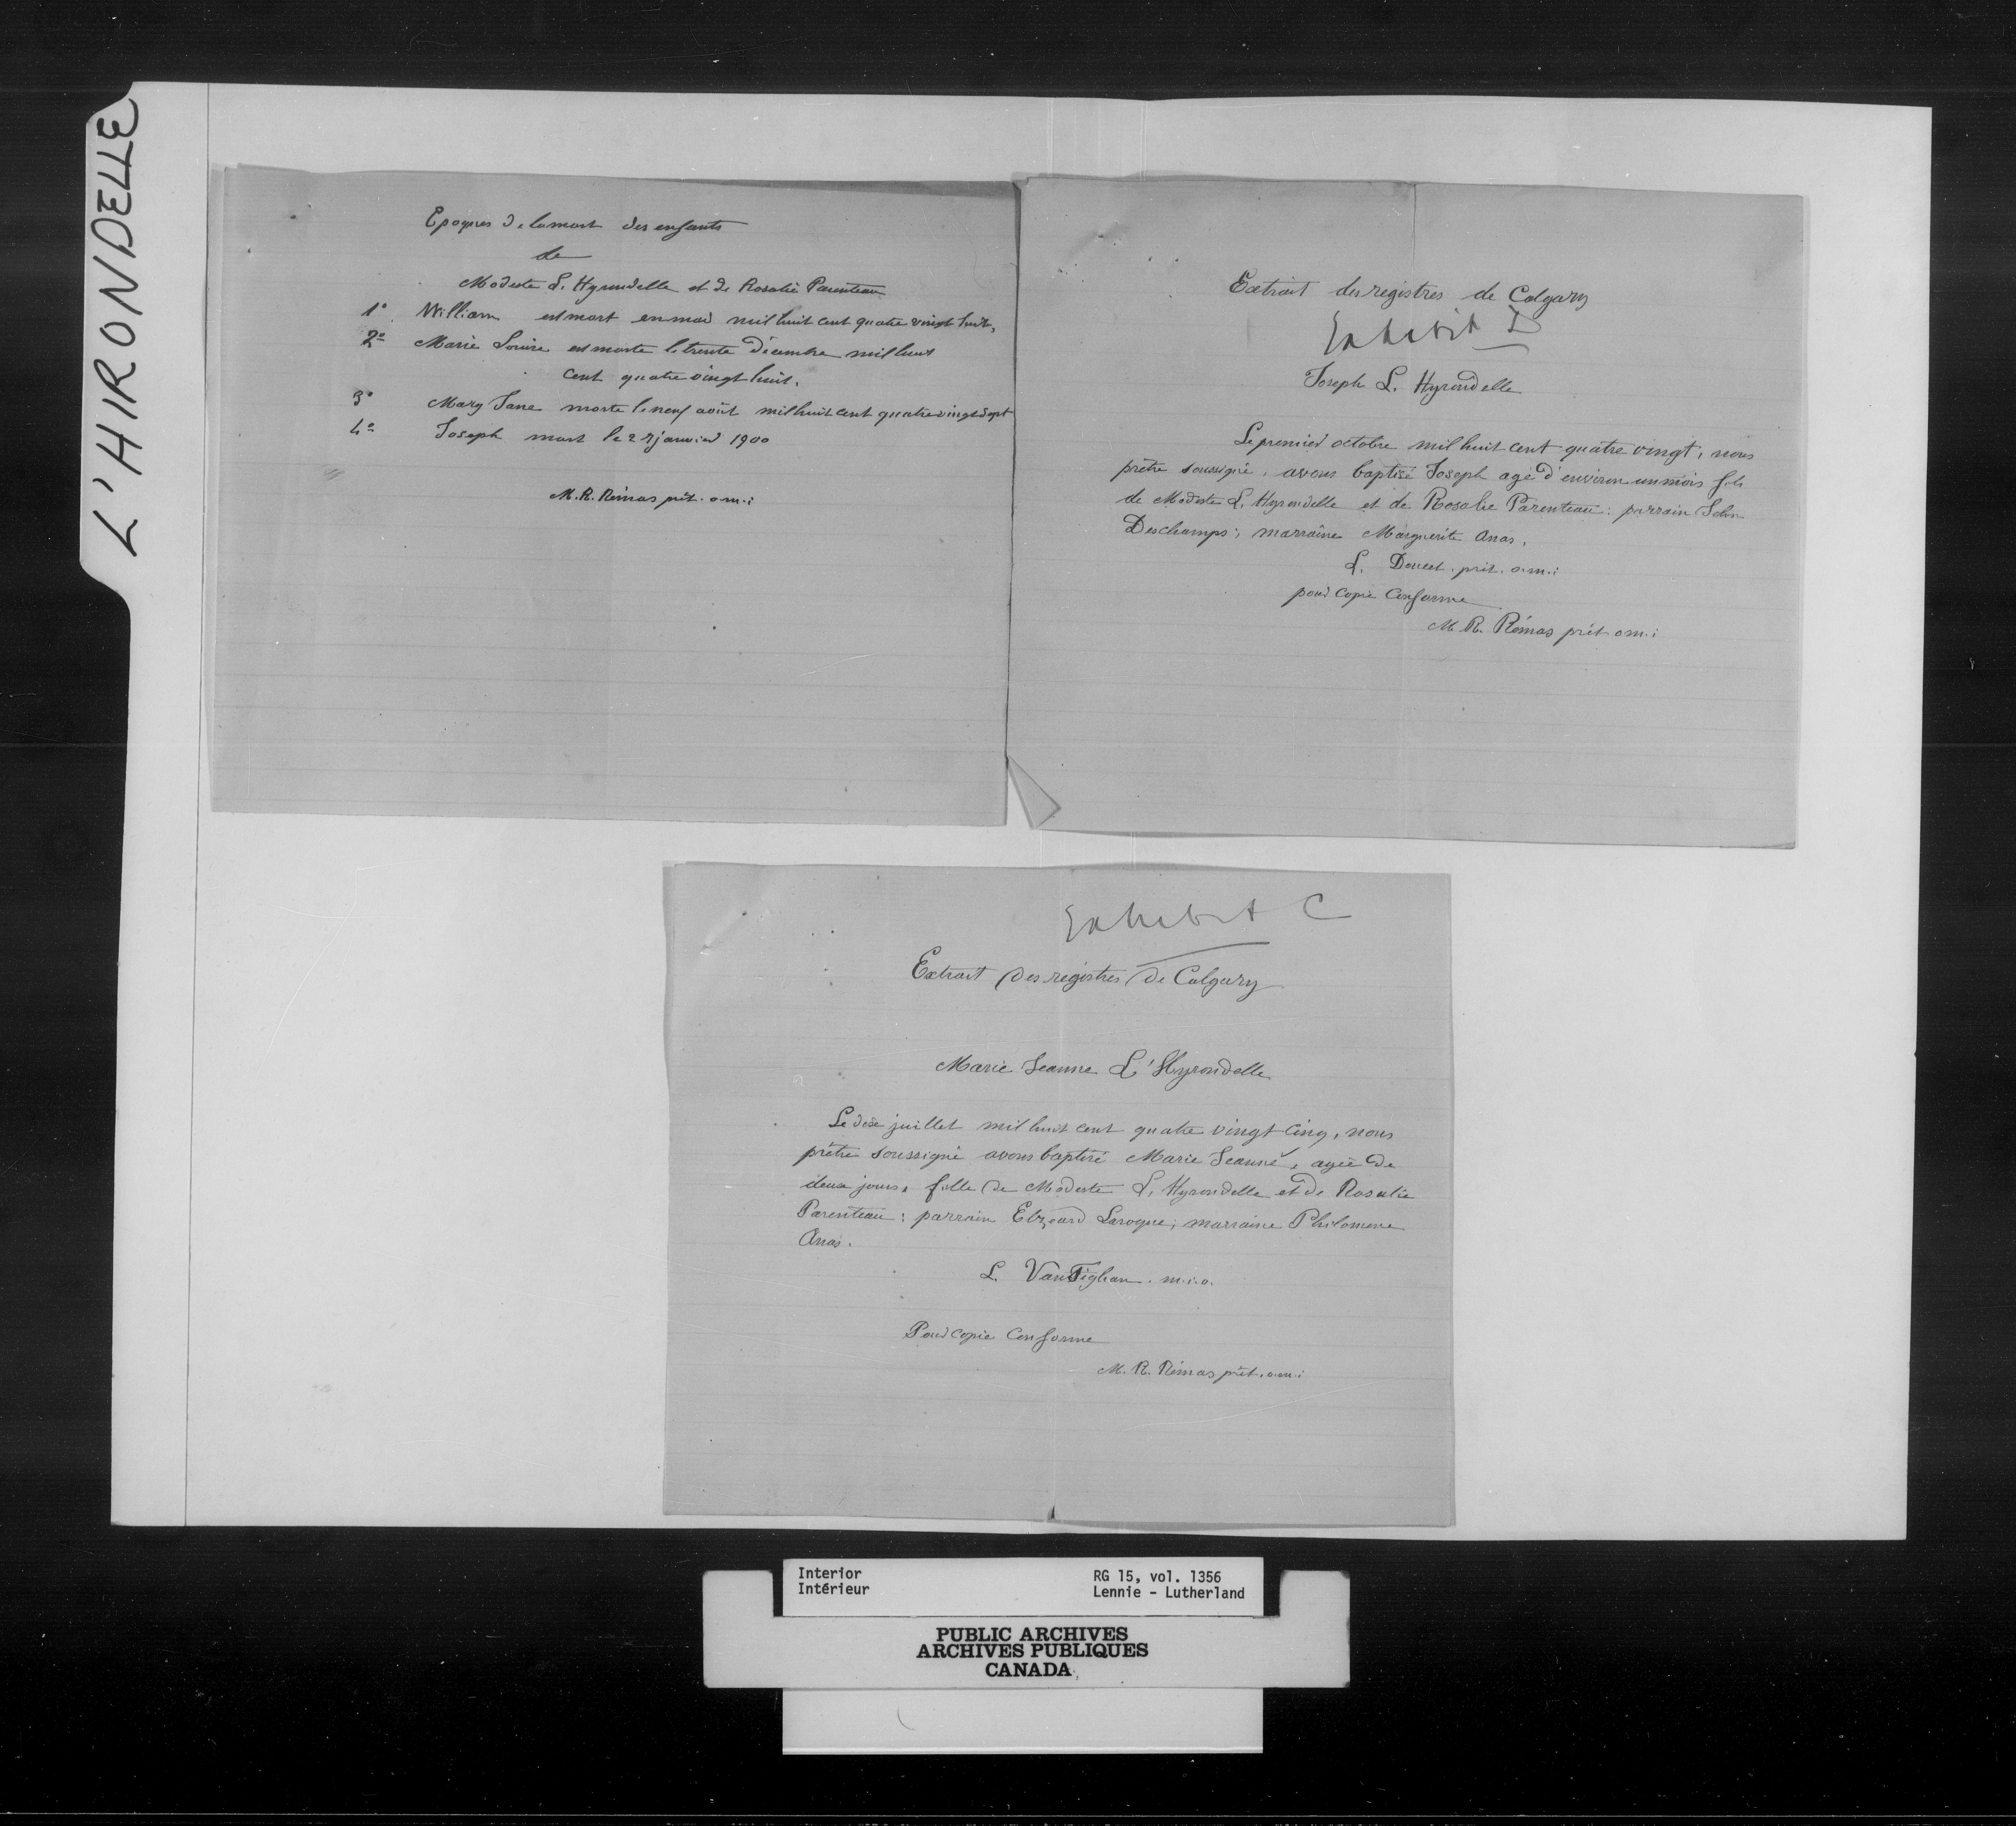 L'HIRONDELLE
Epoques de la mort des enfants
de
Modeste L. Hyrondelle et de Rosalie Parenteau
1° William est mort en mai mil huit cent quatre vingt huit,
2° Marie Louise est morte le trente décembre mil huit
cent quatre vingt huit.
3° Mary Jane morte le neuf août mil huit cent quatre vingt sept
4° Joseph mort le 27 janvier 1900
M. R. Rémas prêt. o.m.i
Extrait des registres de Calgary
Exhibit D
Joseph L. Hyrondelle
Le premier octobre mil huit cent quatre vingt, nous
prêtre soussigné, avons baptisé Joseph agé d'environ un mois fils
de Modeste L. Hyrondelle et de Rosalie Parenteau: parrain John
Deschamps; marraine Marguerite Anas.
L. Doucet. prêt. o.m.i
pour copie conforme
M. R. Rémas prêt o.m.i
Exhibit C
Extrait des registres de Calgary
Marie Jeanne L'Hyrondelle
Le dose juillet mil huit cent quatre vingt cinq, nous
prêtre soussigné avons baptisé Marie Jeanne, agée de
deux jours, fille de Modeste L. Hyrondelle et de Rosalie
Parenteau: parrain Elzeard Laroque; marraine Philomene
Anas.
L. VanTighan. m.i.o.
Pour copie conforme
M. R. Rémas prêt. o.m.i
Interior
Intérieur
RG 15, vol. 1356
Lennie - Lutherland
PUBLIC ARCHIVES
ARCHIVES PUBLIQUES
CANADA